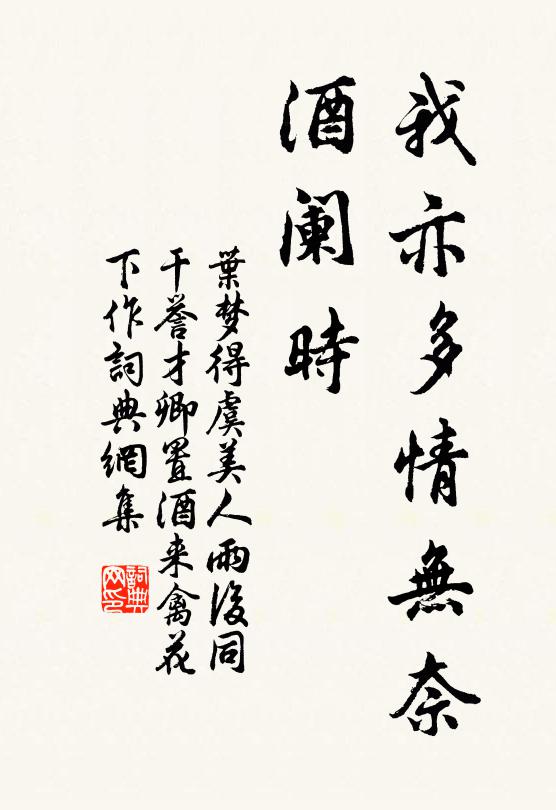 我亦多情無奈
酒阑時
葉梦得虞美人雨後同
干誉才卿置酒来禽花
下作詞典網集
詞典
网印